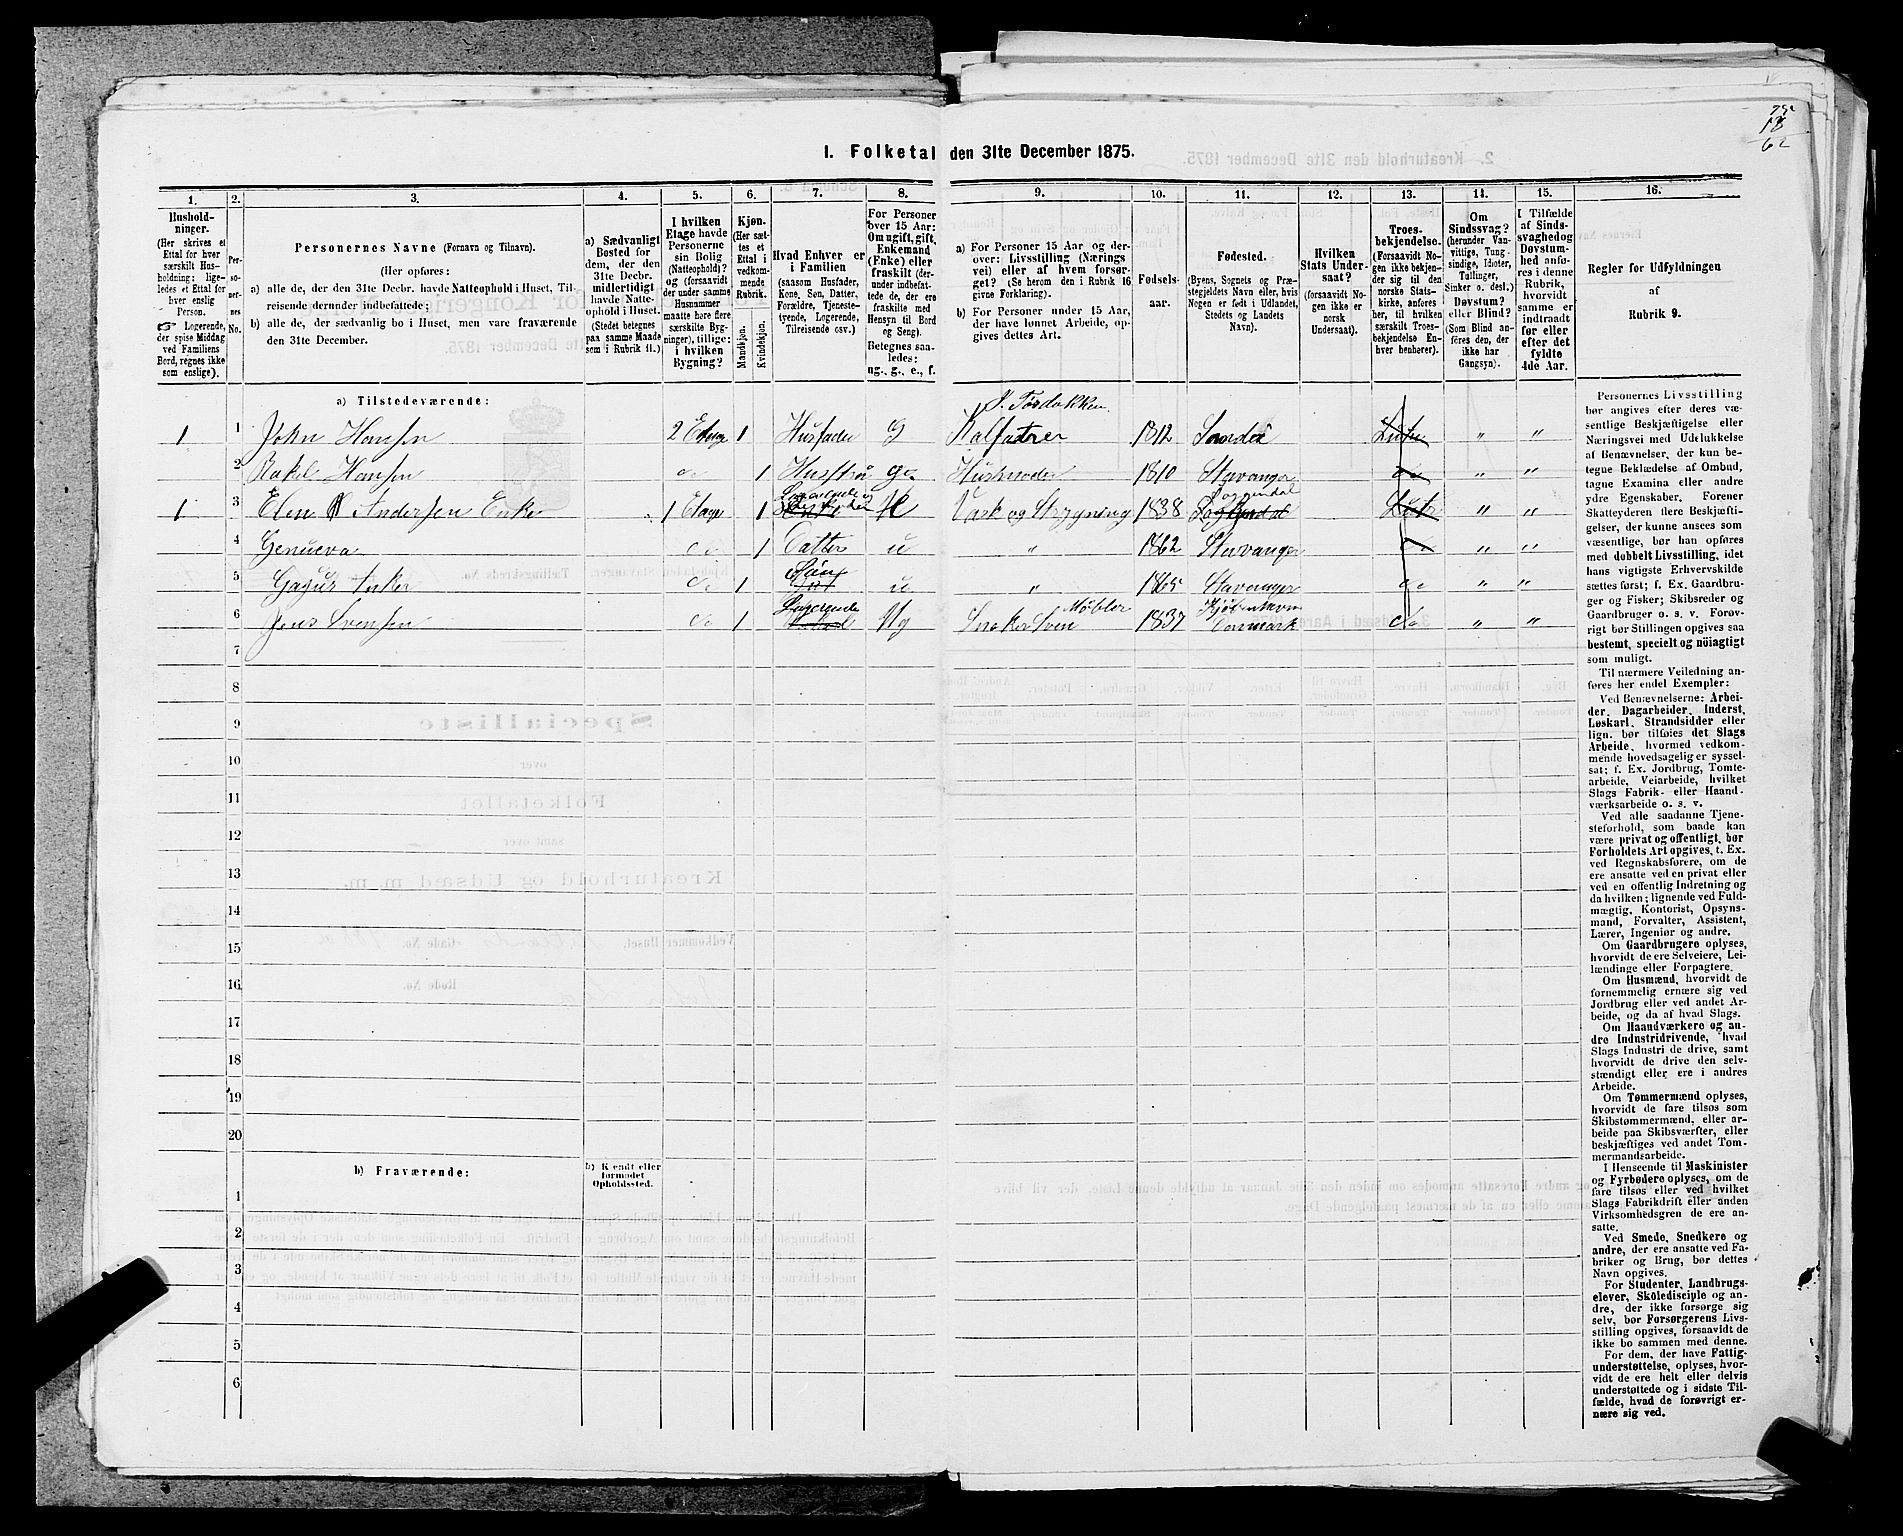 I. Folketal den 31te December 1875.
1. 2. 3. 4. 5. 6. 7. 8. 9. 10. 11. 12. 13. 14. 15. 16.
Husholdninger. (Her skrives et Ettal for hver særskilt Husholdning; ligeledes et Ettal for hver enslig Person. Logerende, der spise Middag ved Familiens Bord, regnes ikke som enslige).
Personernes No.
Personernes Navne (Fornavn og Tilnavn).
(Her opføres:
a) alle de, der den 31te Decbr. havde Natteophold i Huset, Tilreisende derunder indbefattede;
b) alle de, der sædvanlig bo i Huset, men vare fraværende den 31te December.
a) Sædvanligt Bosted for dem, der den 31te Decbr. midlertidigt havde Natteophold i Huset. (Stedet betegnes paa samme Maade som i Rubrik 11.)
I hvilken Etage havde Personerne sin Bolig (Natteophold)? og (forsaavidt der under samme Husnummer maatte høre flere særskilte Bygninger), tillige: i hvilken Bygning?
Kjøn. (Her sættes et Ettal i vedkommende Rubrik. Mandkjøn. Kvindekjøn.
Hvad Enhver er i Familien (saasom Husfader, Kone, Søn, Datter, Forældre, Tjenestetyende, Logerende, Tilreisende osv.)
For Personer over 15 Aar: Om ugift, gift, Enkemand (Enke) eller fraskilt (derunder indbefattede de, der ere fraskilte med Hensyn til Bord og Seng). Betegnes saaledes: ug., g., e., f.
a) For Personer 15 Aar og derover: Livsstilling (Næringsvei) eller af hvem forsørget? (Se herom den i Rubrik 16 givne Forklaring).
b) For Personer under 15 Aar, der have lønnet Arbeide, opgives dettes Art.
Fødselsaar.
Fødested. (Byens, Sognets og Præstegjeldets Navn eller, hvis Nogen er født i Udlandet, Stedets og Landets Navn).
Hvilken Stats Undersaat? (forsaavidt Nogen ikke er norsk Undersaat).
Troesbekjendelse. (Forsaavidt Nogen ikke bekjender sig til den norske Statskirke, anføres her, til hvilken særskilt Troesbekjendelse Enhver henhører).
Om Sindssvag? (herunder Vanvittige, Tungsindige, Idioter, Tullinger, Sinker o. desl.) Døvstum? eller Blind? (Som Blind anføres den, der ikke har Gangsyn).
I Tilfælde af Sindssvaghed og Døvstumhed anføres i denne Rubrik, hvorvidt samme er indtraadt før eller efter det fyldte 4de Aar.
Regler for Udfyldningen af Rubrik 9.
a) Tilstedeværende:
1 1 John Hansen 2 Etage 1 Husfader g 1812 Luthr " "
2 Rakel Hansen do 1 Hustru g. Husmoder 1810 Stavanger do " "
1 3 Elen Andersen Enke 1 Etage 1 Vask og Strygning 1838 Luthr " "
4 Genueva do 1 Datter u " 1862 Stavanger do " "
5 Gajus Anker do 1 Søn u " 1865 Stavanger do " "
6 Jens Svensen do 1 Logerende Ug Snekersven Møbler 1837 Kjøbenhavn Danmark do " "
7
8
9
10
11
12
13
14
15
16
17
18
19
20
b) Fraværende:
b) Kjendt eller formodet Opholdssted.
1
2
3
4
5
6
Personernes Livsstilling
bør angives efter deres væ-
sentlige Beskjæftigelse eller
Næringsvei med Udelukkelse
af Benævnelser, der kun be-
tegne Beklædelse af Ombud,
tagne Examina eller andre
ydre Egenskaber. Forener
Skatteyderen flere Beskjæfti-
gelser, der kunne ansees som
væsentlige, bør han opføres
med dobbelt Livsstilling, idet
hans vigtigste Erhvervskilde
sættes først; f. Ex. Gaardbru-
ger og Fisker; Skibsreder og
Gaardbruger o. s. v. Forøv-
rigt bør Stillingen opgives saa
bestemt, specielt og nøiagtigt
som muligt.
Til nærmere Veiledning an-
føres her endel Exempler:
Ved Benævnelserne: Arbei-
der, Dagarbeider, Inderst,
Løskarl, Strandsidder eller
lign. bør tilføies det Slags
Arbeide, hvormed vedkom-
mende hovedsagelig er syssel-
sat; f. Ex. Jordbrug, Tomte-
arbeide, Veiarbeide, hvilket
Slags Fabrik- eller Haand-
værksarbeide o. s. v.
Ved alle saadanne Tjene-
steforhold, som baade kan
være privat og offentligt, bør
Forholdets Art opgives, t. Ex.
ved Regnskabsførere, om de
ere ansatte ved en privat eller
ved en offentlig Indretning og
da hvilken; lignende ved Fuld-
mægtig, Kontorist, Opsyns-
mand, Forvalter, Assistent,
Lærer, Ingeniør og andre.
Om Gaardbrugere oplyses,
hvorvidt de ere Selveiere, Lei-
lændinge eller Forpagtere.
Om Husmænd, hvorvidt de
fornemmelig ernære sig ved
Jordbrug eller ved andet Ar-
beide, og da af hvad Slags.
Om Haandværkere og an-
dre Industridrivende, hvad
Slags Industri de drive, samt
hvorvidt de drive den selv-
stændigt eller ere i andres
Arbeide.
Om Tømmermænd oplyses,
hvorvidt de fare tilsøs som
Skibstømmermænd, eller ar-
beide paa Skibsværfter, eller
beskjæftiges ved andet Tøm-
mermandsarbeide.
I Henseende til Maskinister
og Fyrbødere oplyses, om de
fare tilsøs eller ved hvilket
Slags Fabrikdrift eller anden
Virksomhedsgren de ere an-
satte.
Ved Smede, Snedkere og
andre, der ere ansatte ved Fa-
briker og Brug, bør dettes
Navn opgives.
For Studenter, Landbrugs-
elever, Skoledisciple og an-
dre, der ikke forsørge sig
selv, bør Forsørgerens Livs-
stilling opgives, forsaavidt de
ikke bo sammen med denne.
For dem, der have Fattig-
understøttelse, oplyses, hvor-
vidt de ere helt eller delvis
understøttede og i sidste Til-
fælde, hvad de forøvrigt er-
nære sig ved.